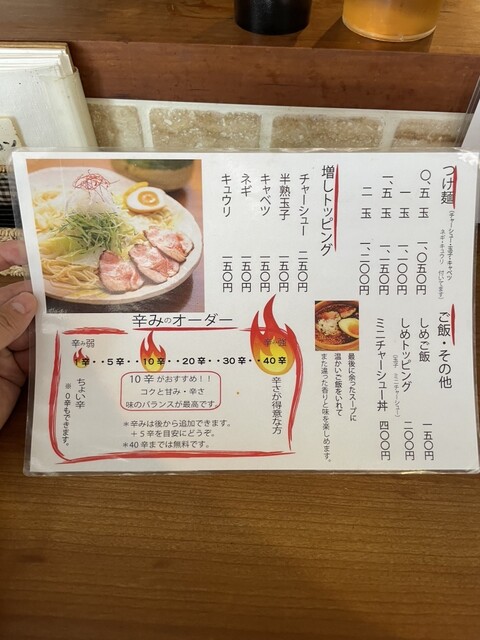 つけ麺
(チャーシュー・玉子・キャベツ
ネギ・キュウリ 付いてます)
〇、五 玉 一、〇五〇円
一 玉 一、一〇〇円
一、五 玉 一、一五〇円
二 玉 一、二〇〇円
増しトッピング
チャーシュー 二五〇円
半熟玉子 一五〇円
キャベツ 一五〇円
ネギ 一五〇円
キュウリ 一五〇円
ご飯・その他
しめご飯 一五〇円
しめトッピング 二〇〇円
(玉子 ミニチャーシュー)
ミニチャーシュー丼 四〇〇円
最後に余ったスープに
温かいご飯をいれて
また違った香りと味を楽しめます。
辛みのオーダー
辛み弱
辛み強
1辛‥5辛‥‥10辛‥‥20辛‥‥30辛‥‥40辛
ちょい辛
※0辛もできます。
10辛がおすすめ!!
コクと甘み・辛さ
味のバランスが最高です
辛さが得意な方
*辛みは後から追加できます。
+5辛を目安にどうぞ。
*40辛までは無料です。